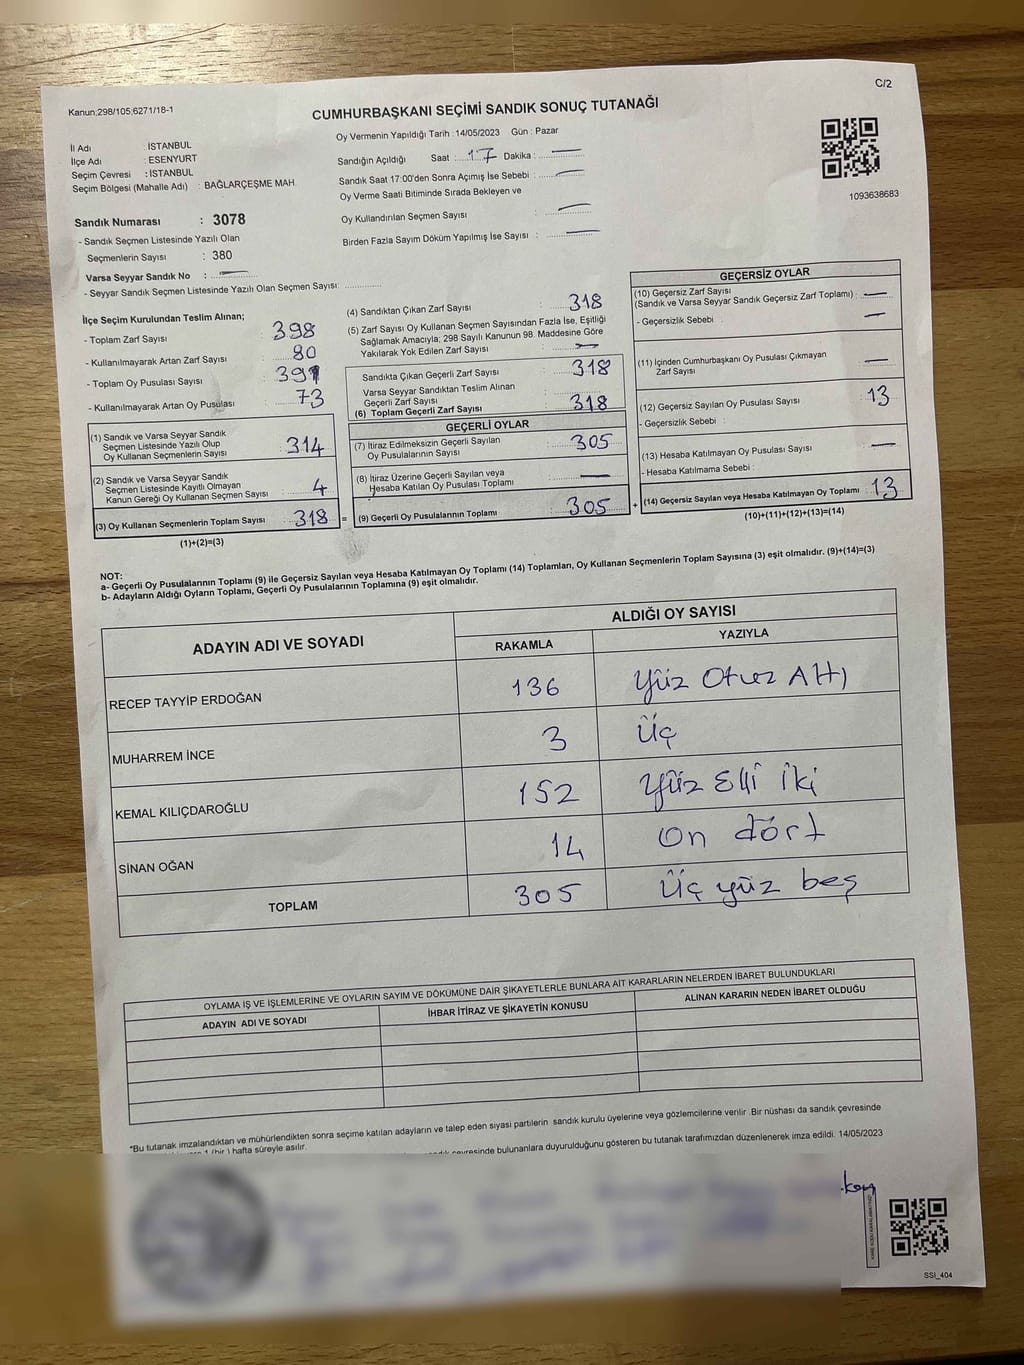 C/2
Kanun;298/105;6271/18-1
CUMHURBAŞKANI SEÇİMİ SANDIK SONUÇ TUTANAĞI
İl Adı : İSTANBUL
İlçe Adı : ESENYURT
Seçim Çevresi : İSTANBUL
Seçim Bölgesi (Mahalle Adı) : BAĞLARÇEŞME MAH
Sandık Numarası : 3078
- Sandık Seçmen Listesinde Yazılı Olan
Seçmenlerin Sayısı : 380
Varsa Seyyar Sandık No : —
- Seyyar Sandık Seçmen Listesinde Yazılı Olan Seçmen Sayısı:
Oy Vermenin Yapıldığı Tarih : 14/05/2023 Gün : Pazar
Sandığın Açıldığı Saat : 17 Dakika : —
Sandık Saat 17:00'den Sonra Açımış İse Sebebi : —
Oy Verme Saati Bitiminde Sırada Bekleyen ve
Oy Kullandırılan Seçmen Sayısı : —
Birden Fazla Sayım Döküm Yapılmış İse Sayısı : —
1093638683
İlçe Seçim Kurulundan Teslim Alınan;
- Toplam Zarf Sayısı 398
- Kullanılmayarak Artan Zarf Sayısı 80
- Toplam Oy Pusulası Sayısı 391
- Kullanılmayarak Artan Oy Pusulası 73
(1) Sandık ve Varsa Seyyar Sandık
Seçmen Listesinde Yazılı Olup
Oy Kullanan Seçmenlerin Sayısı : 314
(2) Sandık ve Varsa Seyyar Sandık
Seçmen Listesinde Kayıtlı Olmayan
Kanun Gereği Oy Kullanan Seçmen Sayısı : 4
(3) Oy Kullanan Seçmenlerin Toplam Sayısı : 318 =
(1)+(2)=(3)
(4) Sandıktan Çıkan Zarf Sayısı : 318
(5) Zarf Sayısı Oy Kullanan Seçmen Sayısından Fazla İse, Eşitliği
Sağlamak Amacıyla; 298 Sayılı Kanunun 98. Maddesine Göre
Yakılarak Yok Edilen Zarf Sayısı : —
Sandıkta Çıkan Geçerli Zarf Sayısı : 318
Varsa Seyyar Sandıktan Teslim Alınan
Geçerli Zarf Sayısı
(6) Toplam Geçerli Zarf Sayısı : 318
GEÇERLİ OYLAR
(7) İtiraz Edilmeksizin Geçerli Sayılan
Oy Pusulalarının Sayısı : 305
(8) İtiraz Üzerine Geçerli Sayılan veya
Hesaba Katılan Oy Pusulası Toplamı : —
(9) Geçerli Oy Pusulalarının Toplamı : 305 +
GEÇERSİZ OYLAR
(10) Geçersiz Zarf Sayısı
(Sandık ve Varsa Seyyar Sandık Geçersiz Zarf Toplamı) : —
- Geçersizlik Sebebi : —
(11) İçinden Cumhurbaşkanı Oy Pusulası Çıkmayan
Zarf Sayısı : —
(12) Geçersiz Sayılan Oy Pusulası Sayısı : 13
- Geçersizlik Sebebi :
(13) Hesaba Katılmayan Oy Pusulası Sayısı : —
- Hesaba Katılmama Sebebi :
(14) Geçersiz Sayılan veya Hesaba Katılmayan Oy Toplamı : 13
(10)+(11)+(12)+(13)=(14)
NOT:
a- Geçerli Oy Pusulalarının Toplamı (9) ile Geçersiz Sayılan veya Hesaba Katılmayan Oy Toplamı (14) Toplamları, Oy Kullanan Seçmenlerin Toplam Sayısına (3) eşit olmalıdır. (9)+(14)=(3)
b- Adayların Aldığı Oyların Toplamı, Geçerli Oy Pusulalarının Toplamına (9) eşit olmalıdır.
ADAYIN ADI VE SOYADI ALDIĞI OY SAYISI
RAKAMLA YAZIYLA
RECEP TAYYİP ERDOĞAN 136 Yüz Otuz Altı
MUHARREM İNCE 3 Üç
KEMAL KILIÇDAROĞLU 152 Yüz Elli İki
SİNAN OĞAN 14 On dört
TOPLAM 305 Üç yüz beş
OYLAMA İŞ VE İŞLEMLERİNE VE OYLARIN SAYIM VE DÖKÜMÜNE DAİR ŞİKAYETLERLE BUNLARA AİT KARARLARIN NELERDEN İBARET BULUNDUKLARI
ADAYIN ADI VE SOYADI İHBAR İTİRAZ VE ŞİKAYETİN KONUSU ALINAN KARARIN NEDEN İBARET OLDUĞU
*Bu tutanak imzalandıktan ve mühürlendikten sonra seçime katılan adayların ve talep eden siyasi partilerin sandık kurulu üyelerine veya gözlemcilerine verilir .Bir nüshası da sandık çevresinde
1 (bir ) hafta süreyle asılır.
çevresinde bulunanlara duyurulduğunu gösteren bu tutanak tarafımızdan düzenlenerek imza edildi. 14/05/2023
SSI_404